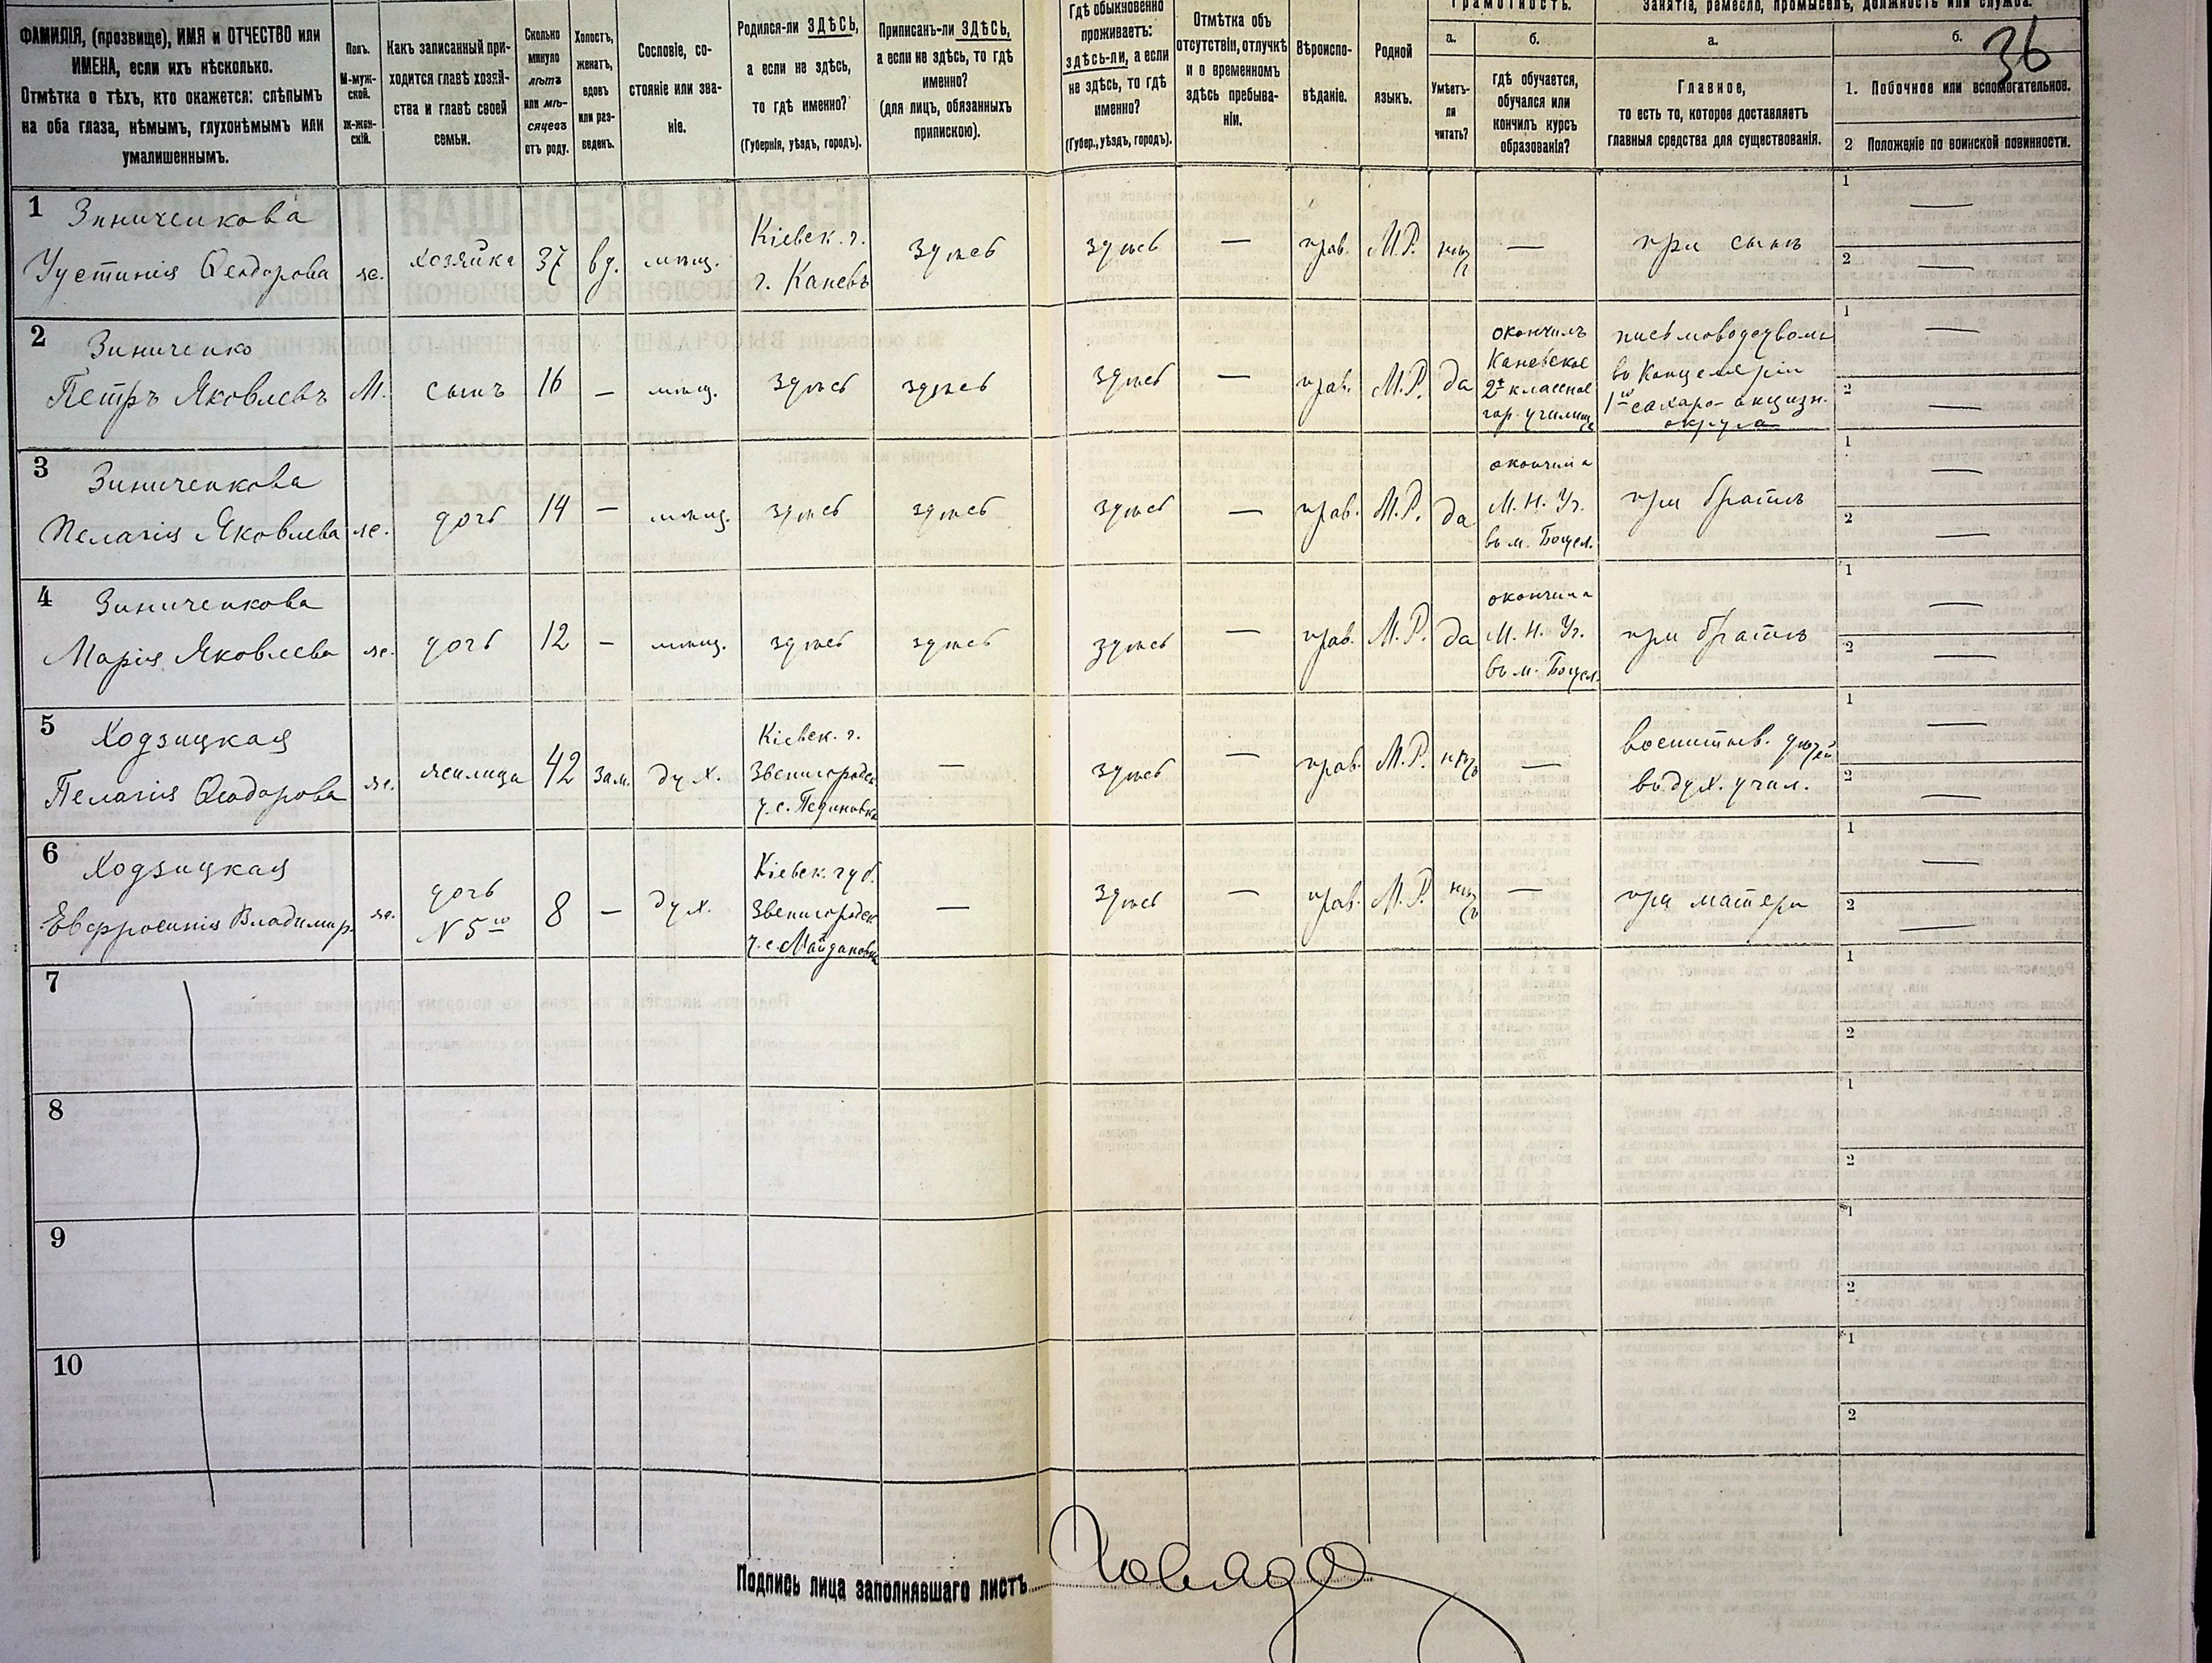 ФАМИЛІЯ, (прозвище), ИМЯ и ОТЧЕСТВО или
ИМЕНА, если ихъ нѣсколько.
Отмѣтка о тѣхъ, кто окажется: слѣпымъ
на оба глаза, нѣмымъ, глухонѣмымъ или
умалишеннымъ.
Полъ.
М-муж-
ской.
ж-жен-
скій.
Какъ записанный при-
ходится главѣ хозяй-
ства и главѣ своей
семьи.
Сколько
минуло
лѣтъ
или мѣ-
сяцевъ
отъ роду.
Холостъ,
женатъ,
вдовъ
или раз-
веденъ.
Сословіе, со-
стояніе или зва-
ніе.
Родился-ли ЗДѢСЬ,
а если не здѣсь,
то гдѣ именно?
(Губернія, уѣздъ, городъ).
Приписанъ-ли ЗДѢСЬ,
а если не здѣсь, то гдѣ
именно?
(для лицъ, обязанныхъ
припискою).
Гдѣ обыкновенно
проживаетъ:
здѣсь-ли, а если
не здѣсь, то гдѣ
именно?
(Губер., уѣздъ, городъ).
Отмѣтка объ
отсутствіи, отлучкѣ
и о временномъ
здѣсь пребыва-
ніи.
Вѣроиспо-
вѣданіе.
Родной
языкъ.
Грамотность.
а.
Умѣетъ-
ли
читать?
б.
гдѣ обучается,
обучался или
кончилъ курсъ
образованія?
Занятіе, ремесло, промыселъ, должность или служба.
а.
Главное,
то есть то, которое доставляетъ
главныя средства для существованія.
б.
36
1. Побочное или вспомогательное.
2 Положеніе по воинской повинности.
1
Зиниченкова
Устинія Ѳеодорова
ж.
хозяйка
37
вд.
мѣщ.
Кіевск. г.
г. Каневъ
здѣсь
здѣсь
—
прав.
М.Р.
нѣтъ
—
при сынѣ
1 —
2 —
2
Зиниченко
Петръ Яковлевъ
М.
сынъ
16
—
мѣщ.
здѣсь
здѣсь
здѣсь
—
прав.
М.Р.
да
окончилъ
Каневское
2х классное
гор. училище
письмоводствомъ
въ Канцеляріи
1го сахаро-акцизн.
округа
1 —
2 —
3
Зиниченкова
Пелагія Яковлева
ж.
дочь
14
—
мѣщ.
здѣсь
здѣсь
здѣсь
—
прав.
М.Р.
да
окончила
М. Н. Уч.
въ м. Богусл.
при братѣ
1 —
2 —
4
Зиниченкова
Марія Яковлева
ж.
дочь
12
—
мѣщ.
здѣсь
здѣсь
здѣсь
—
прав.
М.Р.
да
окончила
М. Н. Уч.
въ м. Богусл.
при братѣ
1 —
2 —
5
Ходзицкая
Пелагія Ѳеодорова
ж.
жилица
42
зам.
дух.
Кіевск. г.
Звенигородск.
у. с. Пединовка
—
здѣсь
—
прав.
М.Р.
нѣтъ
—
воспитыв. дѣтей
въ дух. учил.
1 —
2 —
6
Ходзицкая
Евфросинія Владимир.
ж.
дочь
N 5го
8
—
дух.
Кіевск. губ.
Звенигородск.
у. с. Майдановка
—
здѣсь
—
прав.
М.Р.
нѣтъ
—
при матери
1 —
2 —
7
1
2
8
1
2
9
1
2
10
1
2
Подпись лица заполнявшаго листъ